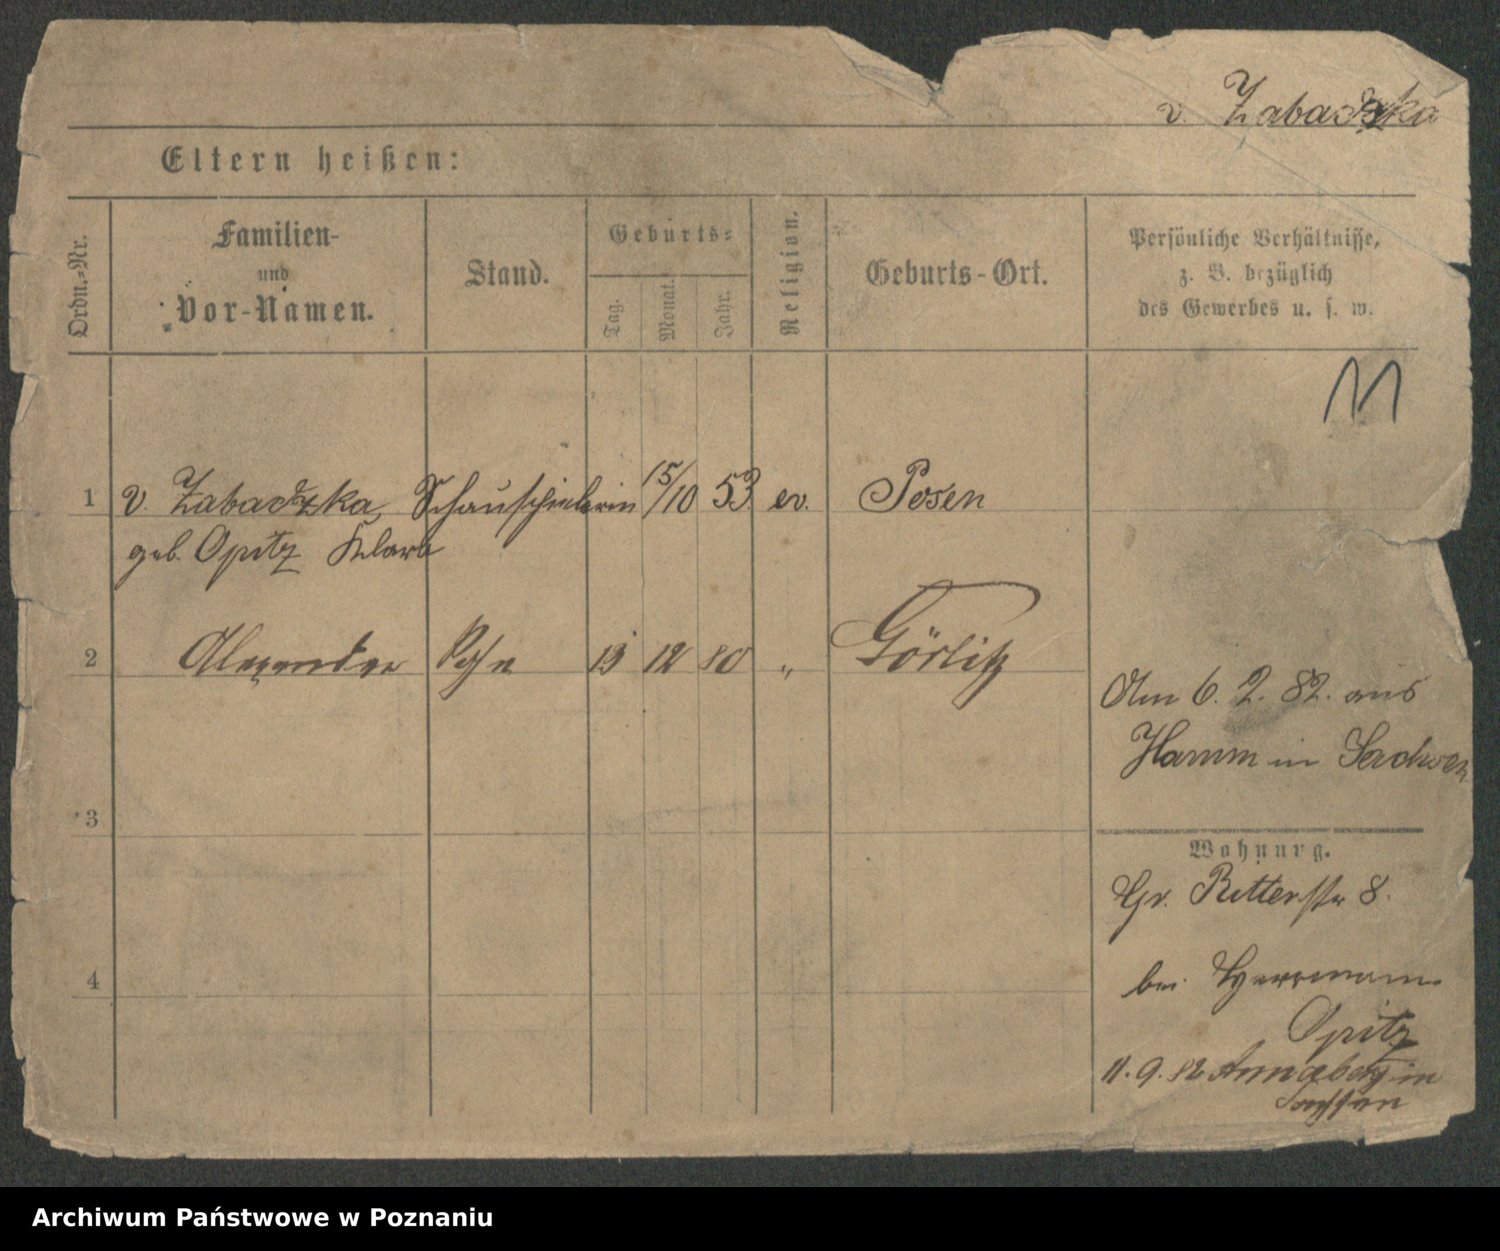 v. Zabadzka
Eltern heißen:
Ordn.=Nr.
Familien-
und
Vor-Namen.
Stand.
Geburts=
Tag.
Monat.
Jahr.
Religion.
Geburts-Ort.
Persönliche Verhältnisse,
z. B. bezüglich
des Gewerbes u. s. w.
1 v. Zabadzka, Schauspielerin 15/10 53. ev. Posen
geb. Opitz Klara
2 Alexander 13 12 80 " Görlitz
Am 6. 2. 82. aus
Hamm in Sachsen
3
Wohnung.
Gr. Ritterstr 8.
bei Herrmann
4
Opitz
11. 9. 82 Annaberg in
Sachsen
Archiwum Państwowe w Poznaniu